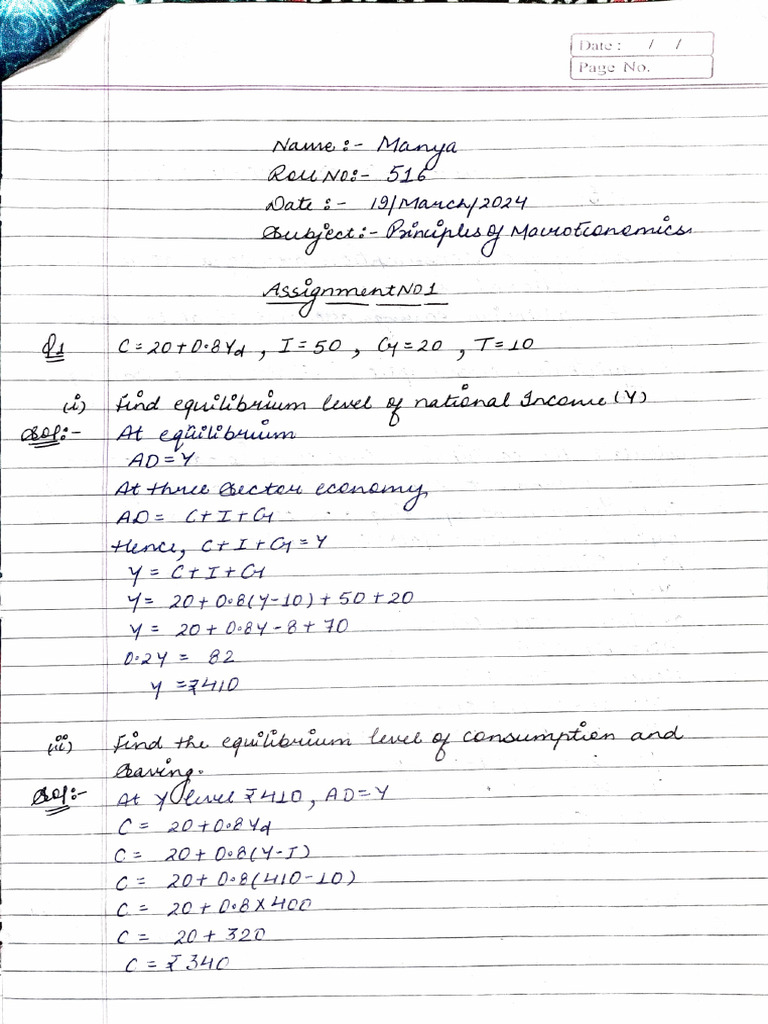 Date : / /
Page No.
Name :- Manya
Roll No:- 516
Date :- 19/March/2024
Subject:- Principles of MacroEconomics.
Assignment NO 1
Q1 C = 20 + 0.8Yd , I = 50 , G = 20 , T = 10
(i) Find equilibrium level of national Income (Y)
Sol:- At equilibrium
AD = Y
At three sector economy,
AD = C + I + G
Hence, C + I + G = Y
Y = C + I + G
Y = 20 + 0.8(Y-10) + 50 + 20
Y = 20 + 0.8Y - 8 + 70
0.2Y = 82
Y = ₹410
(ii) Find the equilibrium level of consumption and
Saving.
Sol:- At Y level ₹410, AD = Y
C = 20 + 0.8Yd
C = 20 + 0.8(Y-T)
C = 20 + 0.8(410-10)
C = 20 + 0.8 × 400
C = 20 + 320
C = ₹340